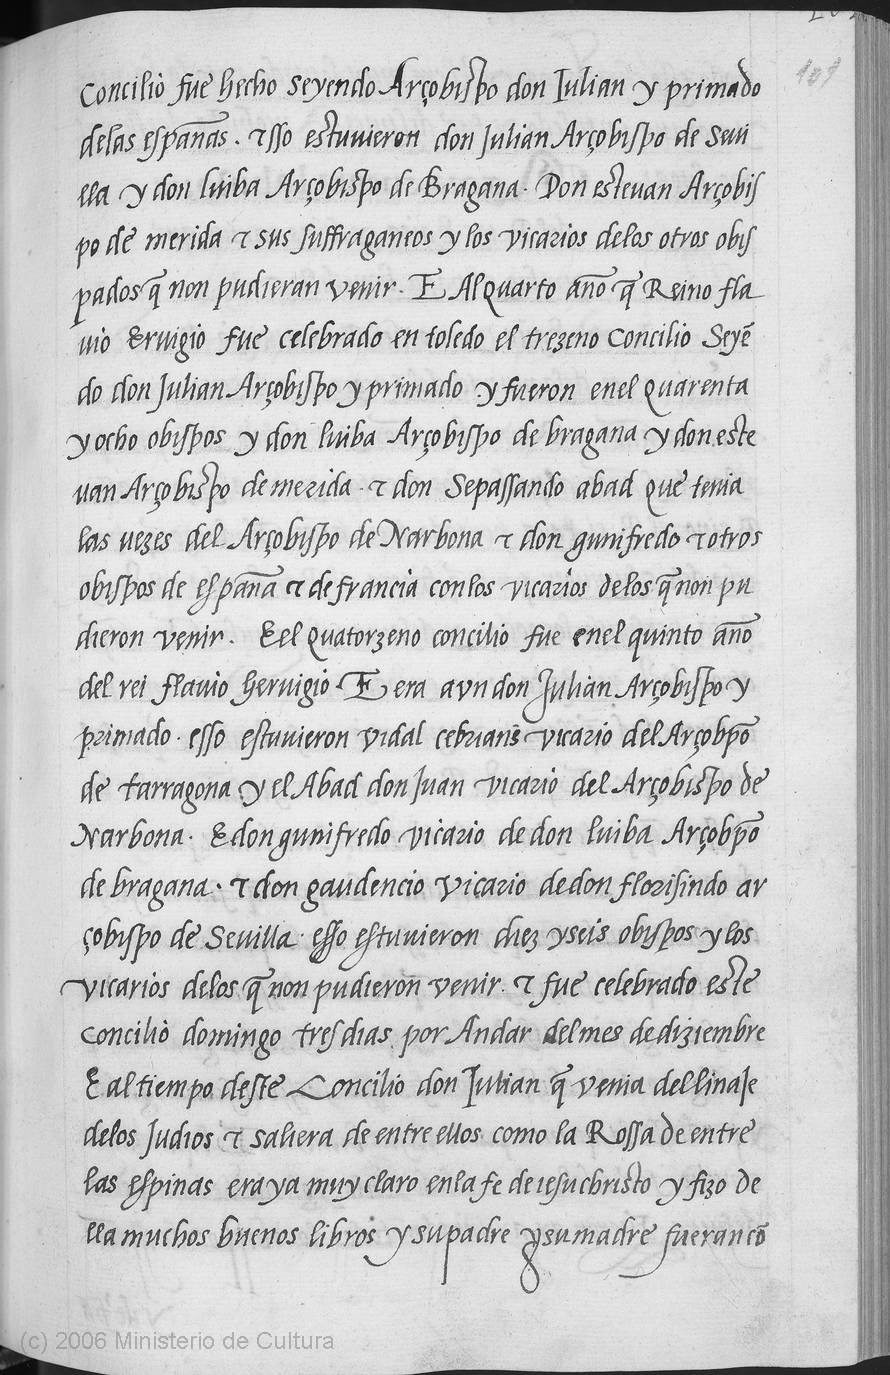 101
Concilio fue hecho seyendo Arçobispo don Iulian y primado
delas españas . τ sso estuuieron don Julian Arçobispo de Seui
lla y don luiba Arçobispo de Bragana . Don esteuan Arçobis
po de merida τ sus suffraganeos y los vicarios delos otros obis
pados q̃ non pudieran venir . E Al Quarto año q̃ Reino fla
uio Eruigio fue celebrado en toledo el trezeno Concilio Seyẽ
do don Julian Arçobispo y primado y fueron enel quarenta
y ocho obispos y don luiba Arçobispo de bragana y don este
uan Arçobispo de merida . τ don Sepassando abad que tenia
las vezes del Arçobispo de Narbona τ don gunifredo τ otros
obispos de españa τ de francia con los vicarios delos q̃ non pu
dieron venir . E el quatorzeno concilio fue enel quinto año
del rei flauio heruigio . E era avn don Julian Arçobispo y
primado . esso estuuieron vidal cebrians vicario del Arçobpõ
de tarragona y el Abad don Juan vicario del Arçobispo de
Narbona . E don gunifredo vicario de don luiba Arçobpõ
de bragana . τ don gaudencio vicario de don florisindo ar
çobispo de Seuilla . esso estuuieron diez y seis obispos y los
vicarios delos q̃ non pudieron venir . τ fue celebrado este
concilio domingo tres dias por Andar del mes de diziembre
E al tiempo deste Concilio don Iulian q̃ venia del linaje
delos Judios τ saliera de entre ellos como la Rossa de entre
las espinas era ya muy claro en la fe de iesuchristo y fizo de
lla muchos buenos libros y su padre y su madre fueran cõ
(c) 2006 Ministerio de Cultura